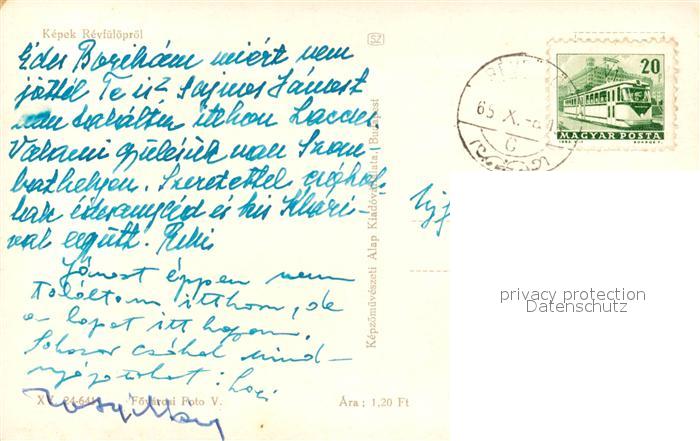 Képek Révfülöpről
SZ
Édes Borikám miért nem
jöttél Te is? Sajnos Jánost
nem találtam itthon
Valami gyűlésük van Szom
bathelyen. Szeretettel
édesanyáddal és kis
val együtt.
Jánost éppen nem
találtam itthon, de
a lapot itt hagyom.
Sokszor csókol mind-
nyájatokat: Laci
XV. 24-641 Fővárosi Foto V.
Ára: 1,20 Ft
Képzőművészeti Alap Kiadóvállalata, Budapest
65 X.
G
20
MAGYAR POSTA
privacy protection
Datenschutz